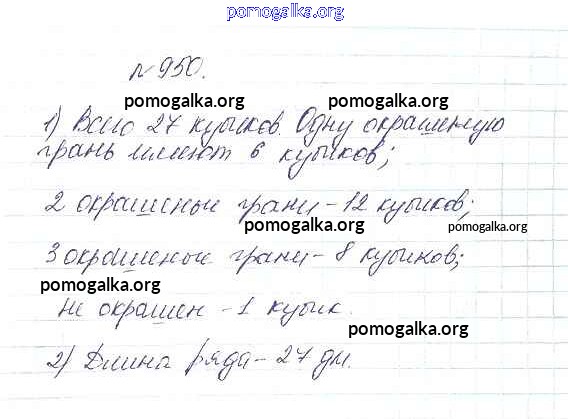 pomogalka.org
№950.
pomogalka.org
1) Всего 27 кубиков. Одну окрашеную
грань имеют 6 кубиков;
pomogalka.org
2 окрашеные грани - 12 кубиков;
pomogalka.org pomogalka.org
3 окрашеные грани - 8 кубиков;
pomogalka.org
Не окрашен - 1 кубик.
pomogalka.org
2) Длина ряда - 27 дм.